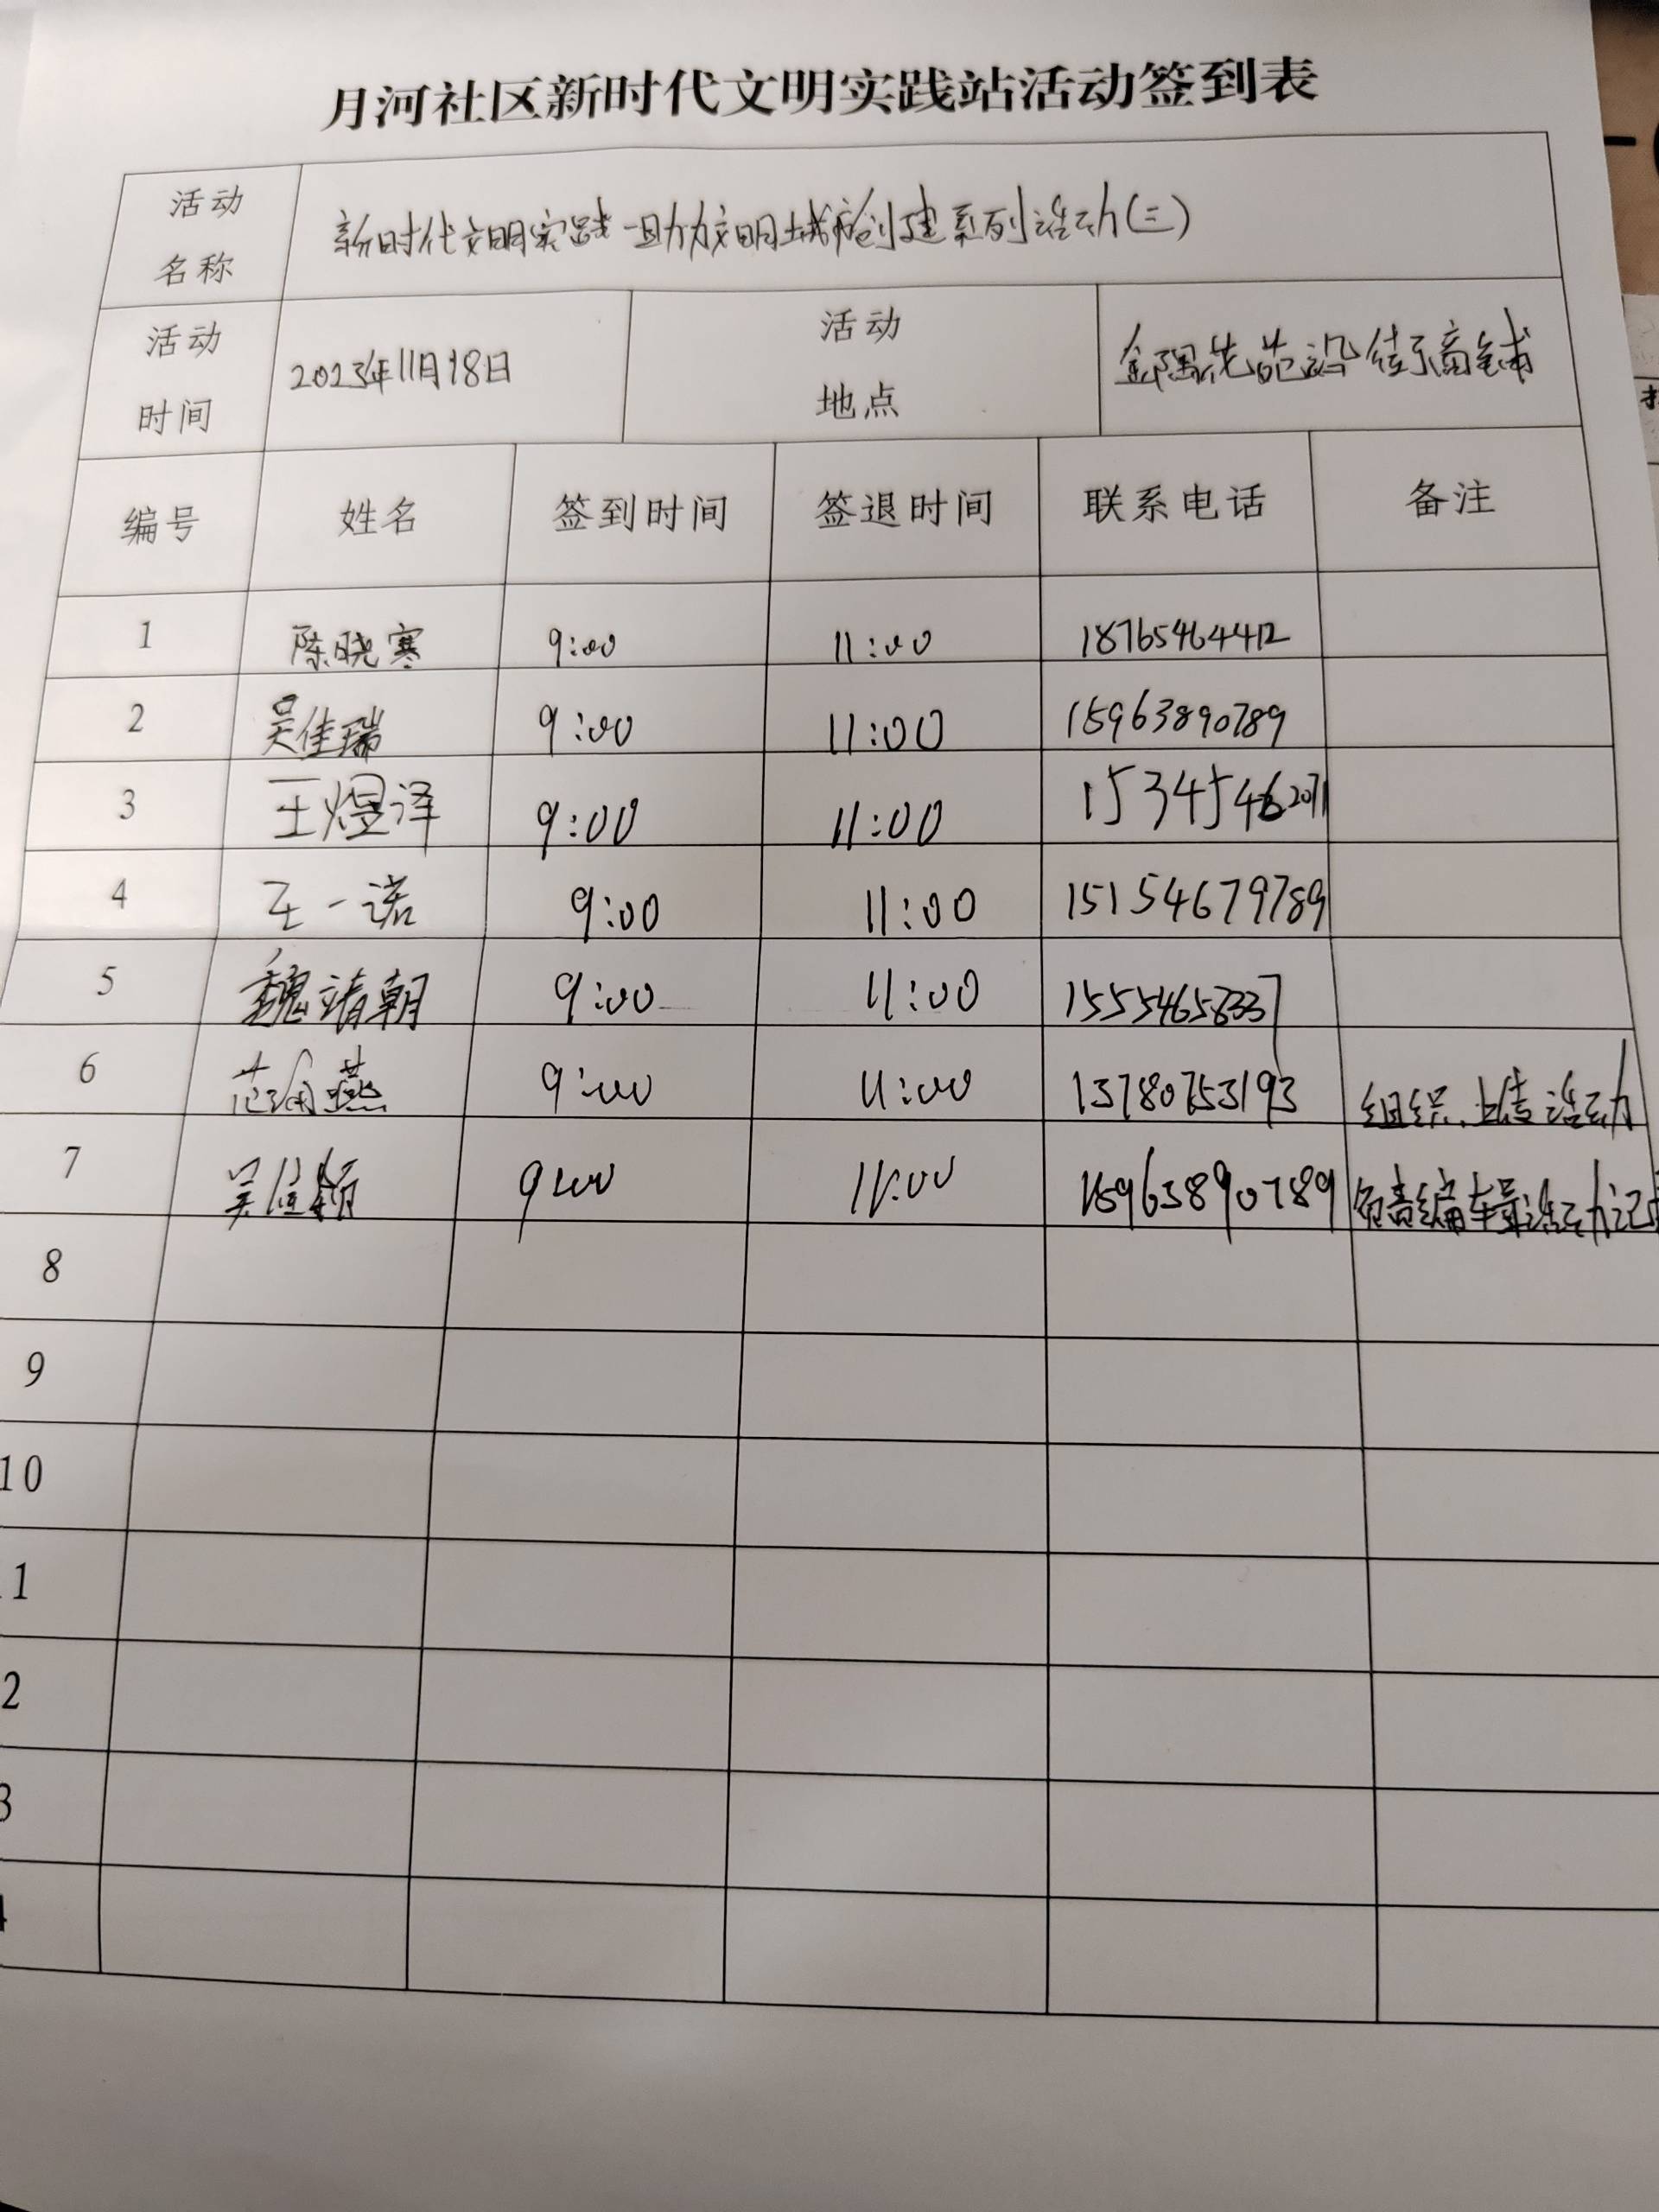 月河社区新时代文明实践站活动签到表
活动名称 新时代文明实践—助力文明城市创建系列活动(三)
活动时间 2023年11月18日 活动地点 街商铺
编号 姓名 签到时间 签退时间 联系电话 备注
1 陈晓寒 9:00 11:00 18765464412
2 吴佳瑞 9:00 11:00 15963890789
3 王煜泽 9:00 11:00
4 王一诺 9:00 11:00 15154679789
5 魏靖朝 9:00 11:00
6 范 燕 9:00 11:00 13780753193 组织、上传活动
7 吴佳颖 9:00 11:00 15963890789 负责编辑活动记
8
9
10
1
2
3